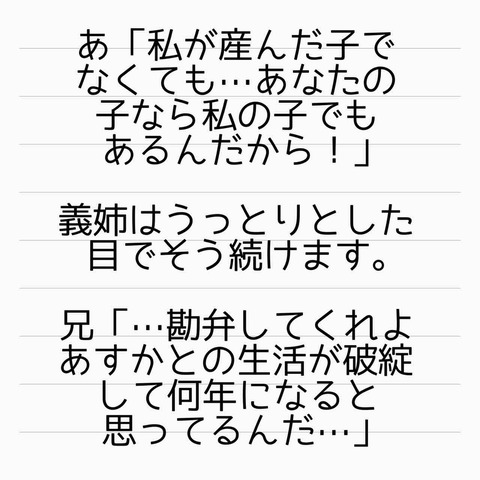 あ「私が産んだ子で
なくても…あなたの
子なら私の子でも
あるんだから！」
義姉はうっとりとした
目でそう続けます。
兄「…勘弁してくれよ
あすかとの生活が破綻
して何年になると
思ってるんだ…」